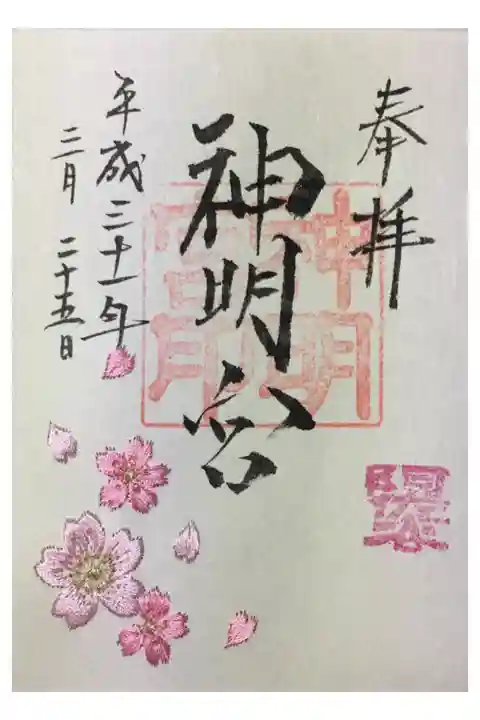 奉拝
神明宮
神明宮印
平成三十一年
三月 二十五日